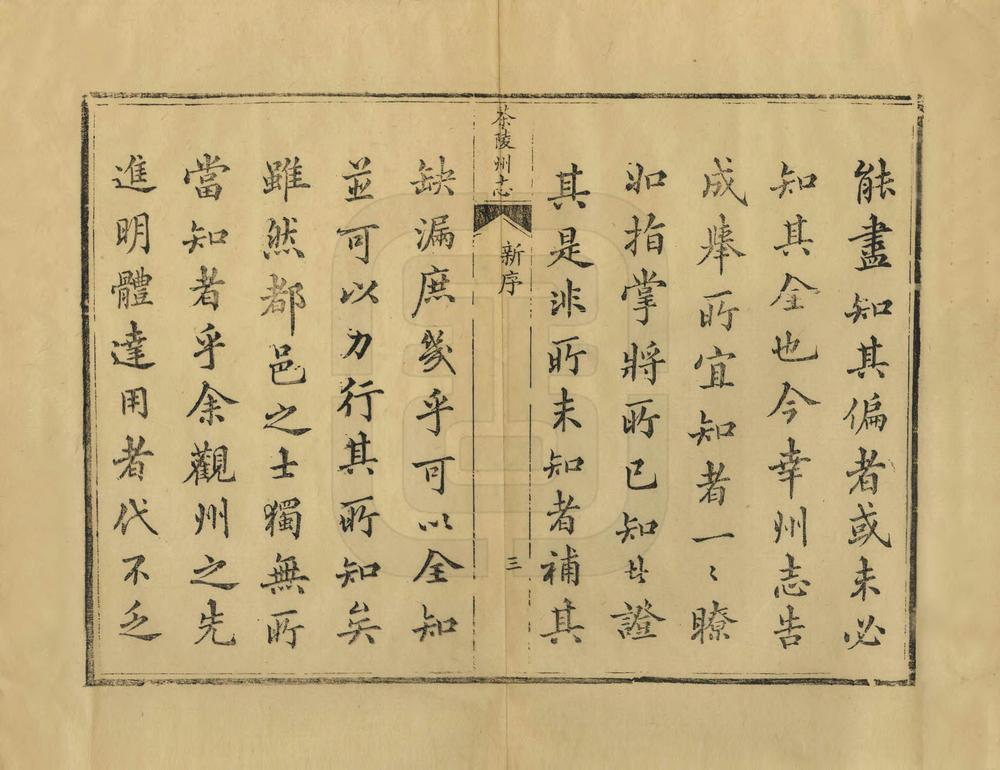 能盡知其偏者或未必
知其全也今幸州志告
成凡所宜知者一〻瞭
如指掌將所已知者證
其是非所未知者補其
茶陵州志
新序
三
缺漏庶幾乎可以全知
並可以力行其所知矣
雖然都邑之士獨無所
當知者乎余觀州之先
進明體達用者代不乏